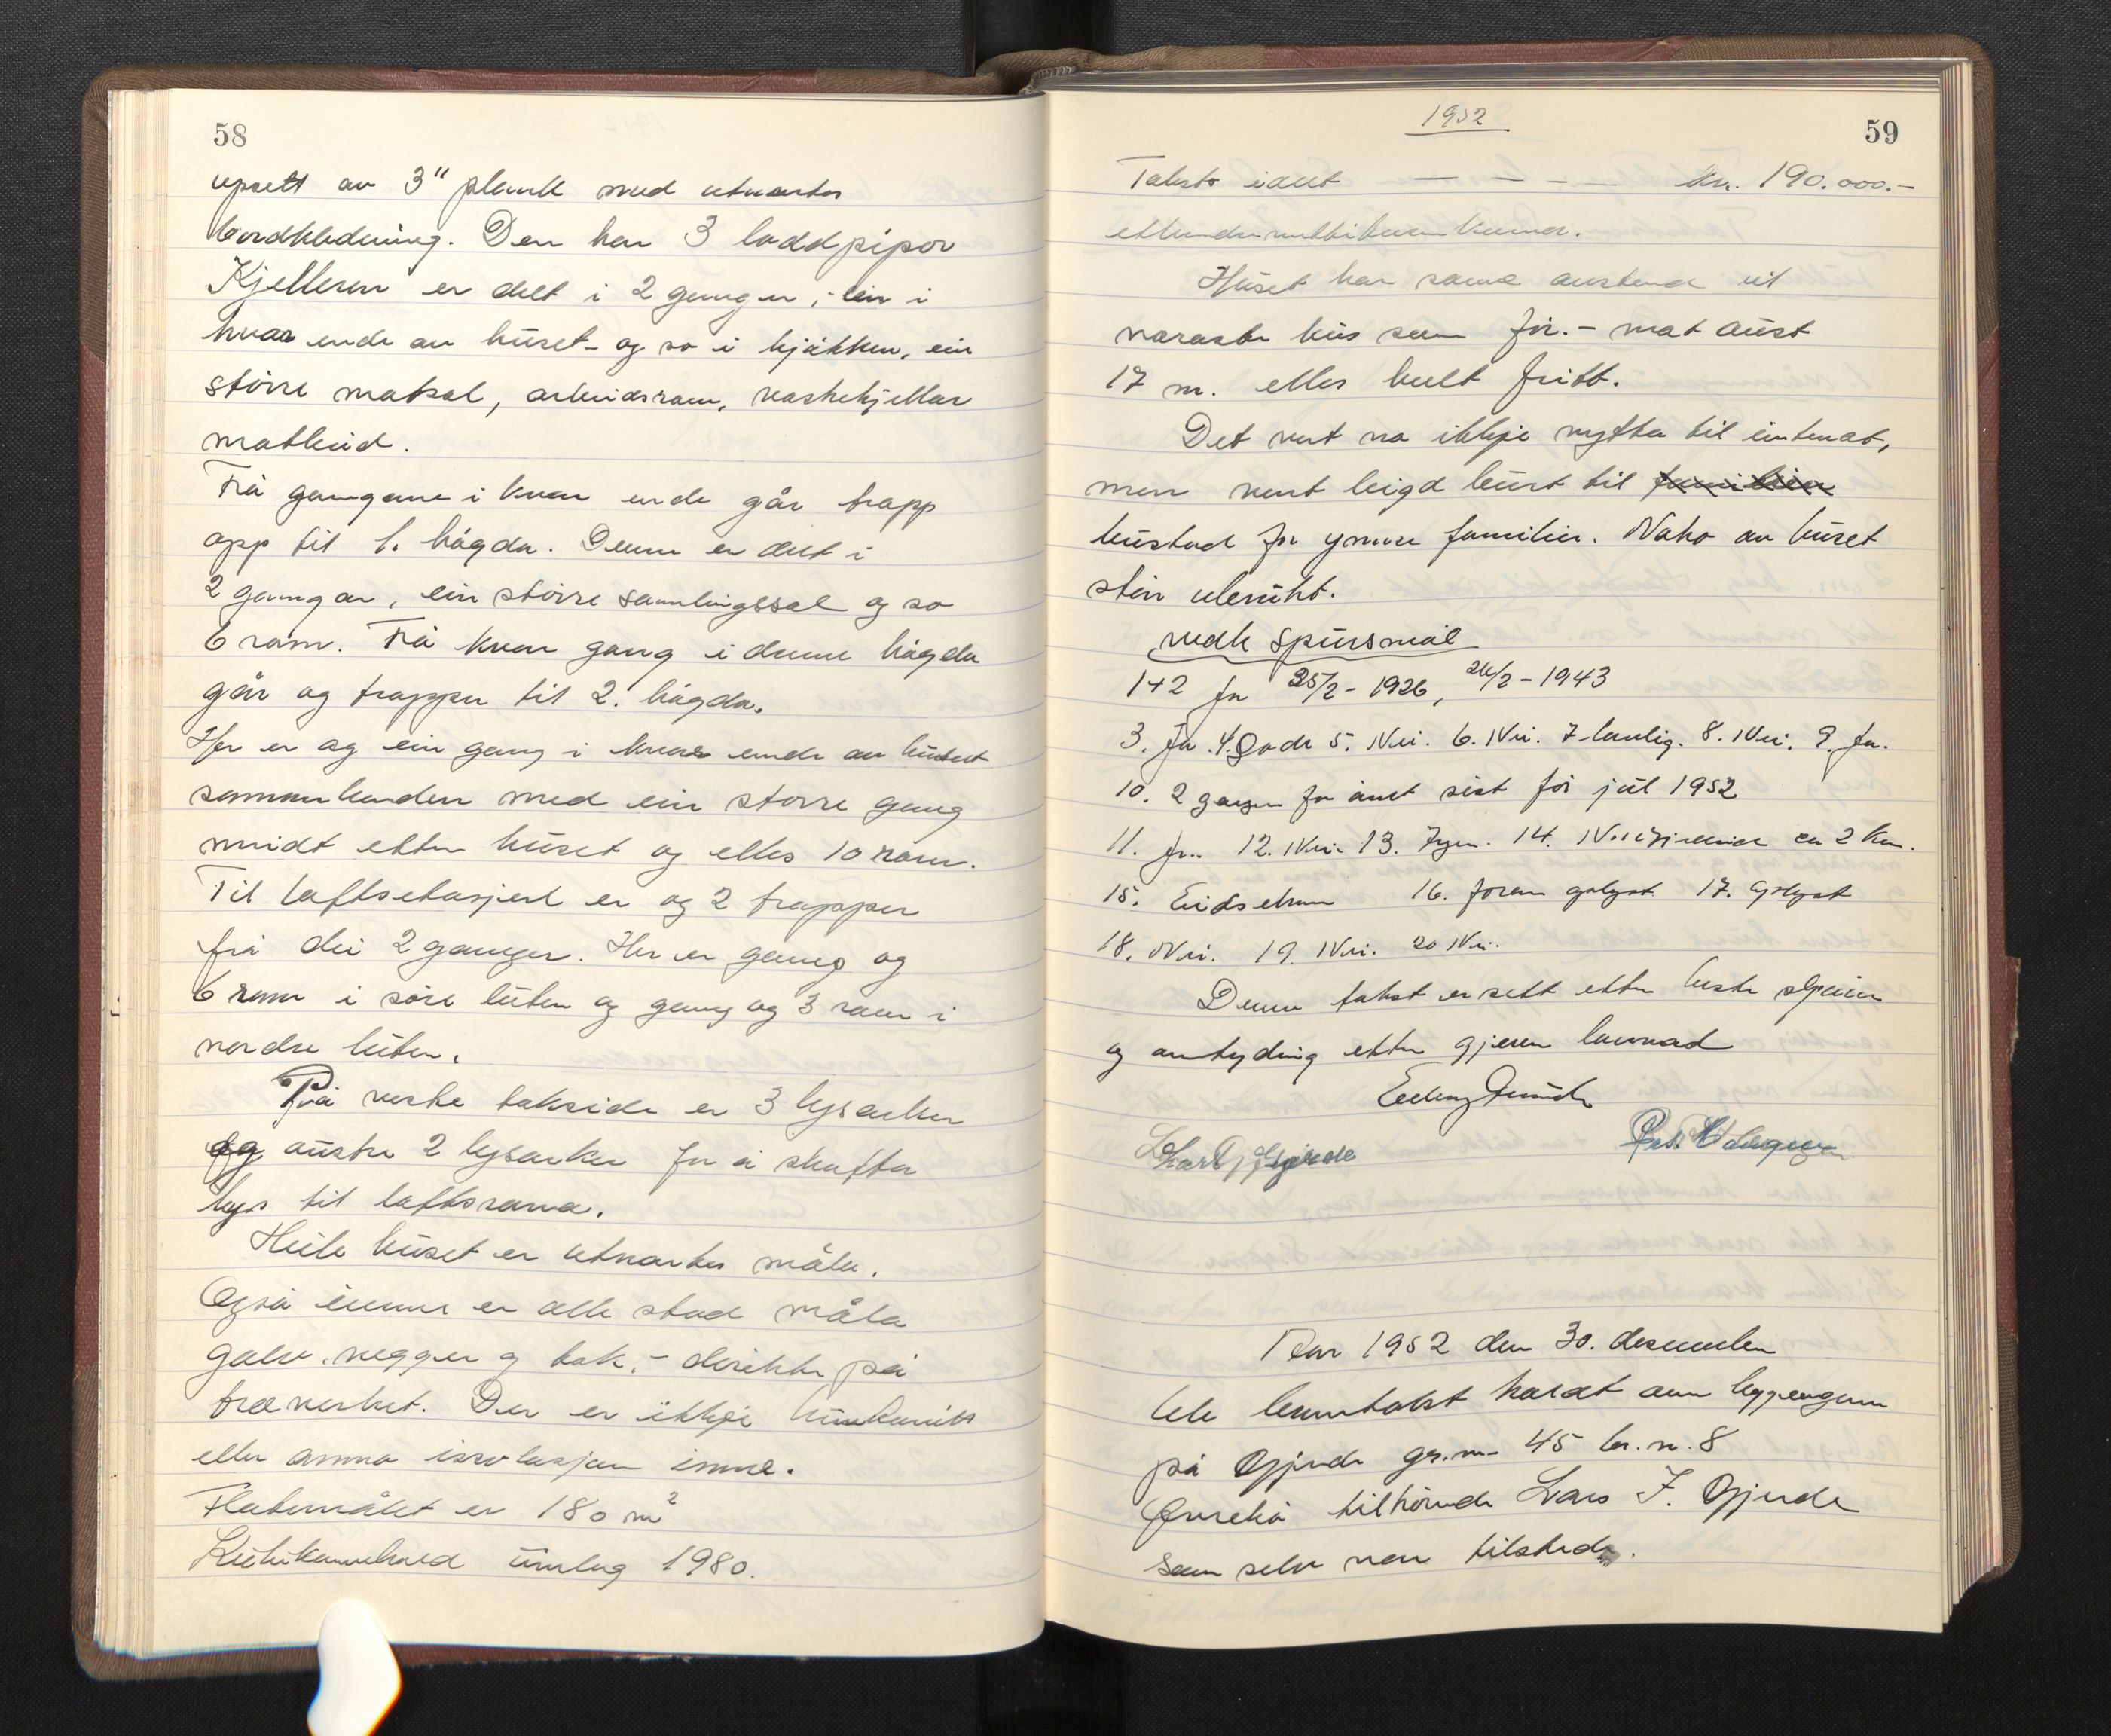 58
upsett av 3" plank med utvortes
bordkledning. Den har 3 loddpipor
Kjelleren er delt i 2 ganger, - ein i
hvar ende av huset - og so i kjøkken, ein
større matsal, arbeidsrom, vaskekjellar
matbud.
Frå gangane i kvar ende går trapp
opp til 1. høgda. Denne er delt i
2 gangar, ein større samlingssal og so
6 rom. Frå kvar gang i denne høgda
går og trapper til 2. høgda.
Her er og ein gang i kvar ende av huset
samanbunden med ein større gang
midt etter huset og elles 10 rom.
Til loftsetasjen er og 2 trapper
frå dei 2 ganger. Her er gang og
6 rom i søre luten og gang og 3 rom i
nordre luten.
På veste takside er 3 lysarker
og austre 2 lysarker for å skaffa
lys til loftsroma.
Heile huset er utvortes måla.
Også inne er alle stad måla
golv, vegger og tak, - direkte på
treverket. Der er ikkje
eller anna issolasjon inne.
Flatemålet er 180 m²
Kubikkinnhald umlag 1980.
1952
59
Takst i alt — — — — kr. 190.000.-
etthundreognittitusen kroner.
Huset har same avstand til
næraste hus som før. - mot aust
17 m. elles heilt fritt.
Det vert no ikkje nytta til internat,
men vert leigd burt til familier
bustad for ymse familier. Noko av huset
står ubrukt.
vedk spursmål
1+2 Ja 25/2 - 1926, 26/2 - 1943
3. Ja. 4. Gode 5. Nei. 6. Nei. 7 lovlig. 8. Nei. 9. Ja.
10. 2 ganger for året sist før jul 1952
11. Ja. 12. Nei 13. Ingen. 14. ca 2 km.
15. Eidselva 16. Joran golyst 17. Golyst
18. Nei. 19. Nei. 20 Nei.
Denne takst er sett etter beste skjønn
og antyding etter gjeven lovnad
Lars J Gjerde
Året 1952 den 30. desember
ble branntakst holdt over bygningen
på Gjerde gr.nr. 45 br.n. 8
Ørsta tilhørende Lars J. Gjerde
som selv var tilstede.